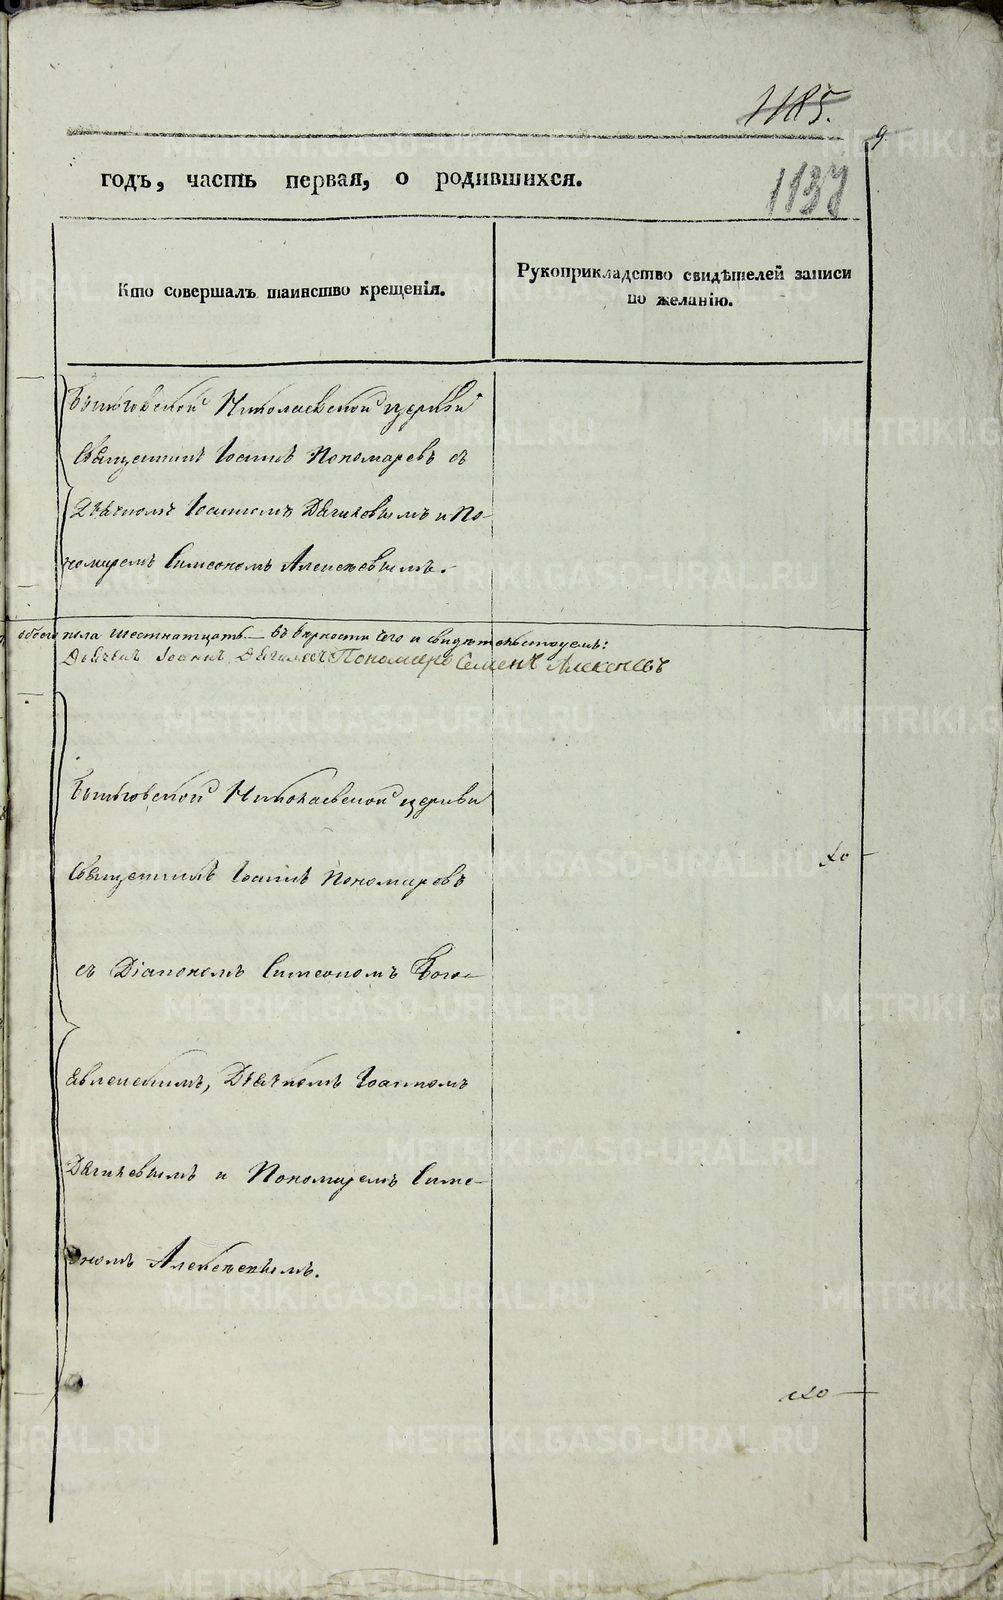 1185.
9
годъ, часть первая, о родившихся.
1137
Кто совершалъ таинство крещенія.
Рукоприкладство свидѣтелей записи
по желанію.
Николаевской церкви
Священникъ Іоаннъ Пономаревъ съ
Дьячкомъ Іоанномъ Дягилевымъ и По-
номаремъ Симеономъ Алексѣевымъ.
обоего пола шестнатцать — въ верности чего и свидѣтельствуемъ:
Дьячекъ Іоаннъ Дягилевъ Пономарь Семенъ Алексѣевъ
Николаевской церкви
Священникъ Іоаннъ Пономаревъ
съ Діакономъ Симеономъ Бого-
явленскимъ, Дьячкомъ Іоанномъ
Дягилевымъ и Пономаремъ Симе-
ономъ Алексѣевымъ.
METRIKI.GASO-URAL.RU